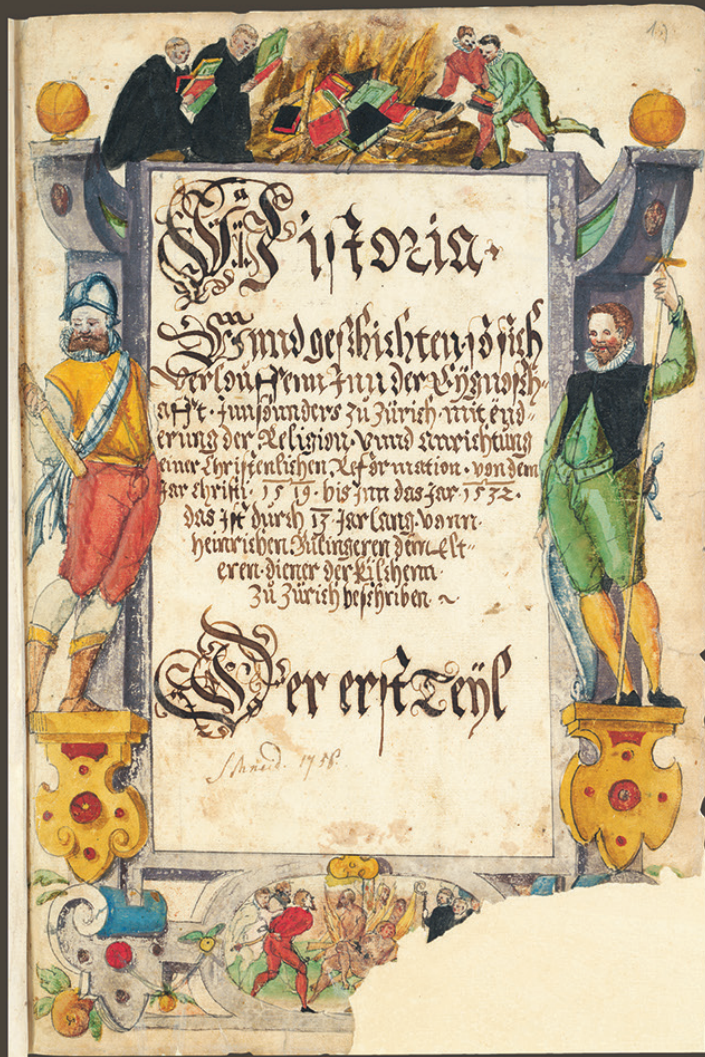 Historia.
Vnnd geschichten, so sich
verlouffenn Inn der Eygnosch-
afft. Jnnsonnders zu Zürich mit end-
erung der Religion. Vnnd anrichtung
einer Christenlichen Reformation. von dem
Jar Christi. 1519. bis Jnn das Jar. 1532.
das ist durch 13 Jar lang. vonn.
Heinrichen Bulingeren dem elt-
eren. diener der kilchenn
zu Zürich beschriben. ~
Der erst Teyl
1756.